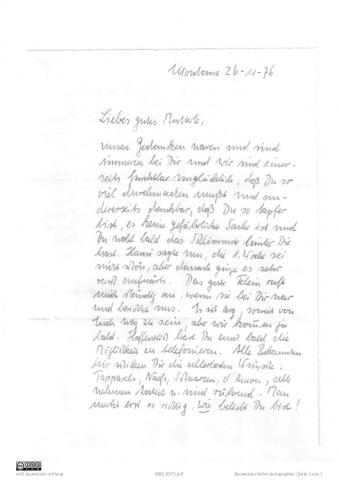 Montana 26-11-76
Liebes gutes Mutterle,
unsere Gedanken waren und sind
immerzu bei Dir und wir sind einer-
seits furchtbar unglücklich, daß Du so
viel durchmachen mußt und an-
dererseits dankbar, daß Du so tapfer
bist, es keine gefährliche Sache ist und
Du wohl bald das Schlimmste hinter Dir
hast. Hansi sagte uns, die 1. Woche sei
nicht schön, aber danach ginge es sehr
rasch aufwärts. Das gute Felein ruft
mich ständig an, wenn sie bei Dir war
und berichtet uns. Es ist arg, soweit von
Euch weg zu sein, aber wir kommen ja
bald. Hoffentlich hast Du auch bald die
Möglichkeit zu telefonieren. Alle Bekannten
hier schicken Dir die allerbesten Wünsche:
alle
nehmen Anteil u. sind rührend. Man
merkt erst so richtig, wie beliebt Du bist!
willi baumeister stiftung
Baumeister-Archiv Autographen | Seite 1 von 2